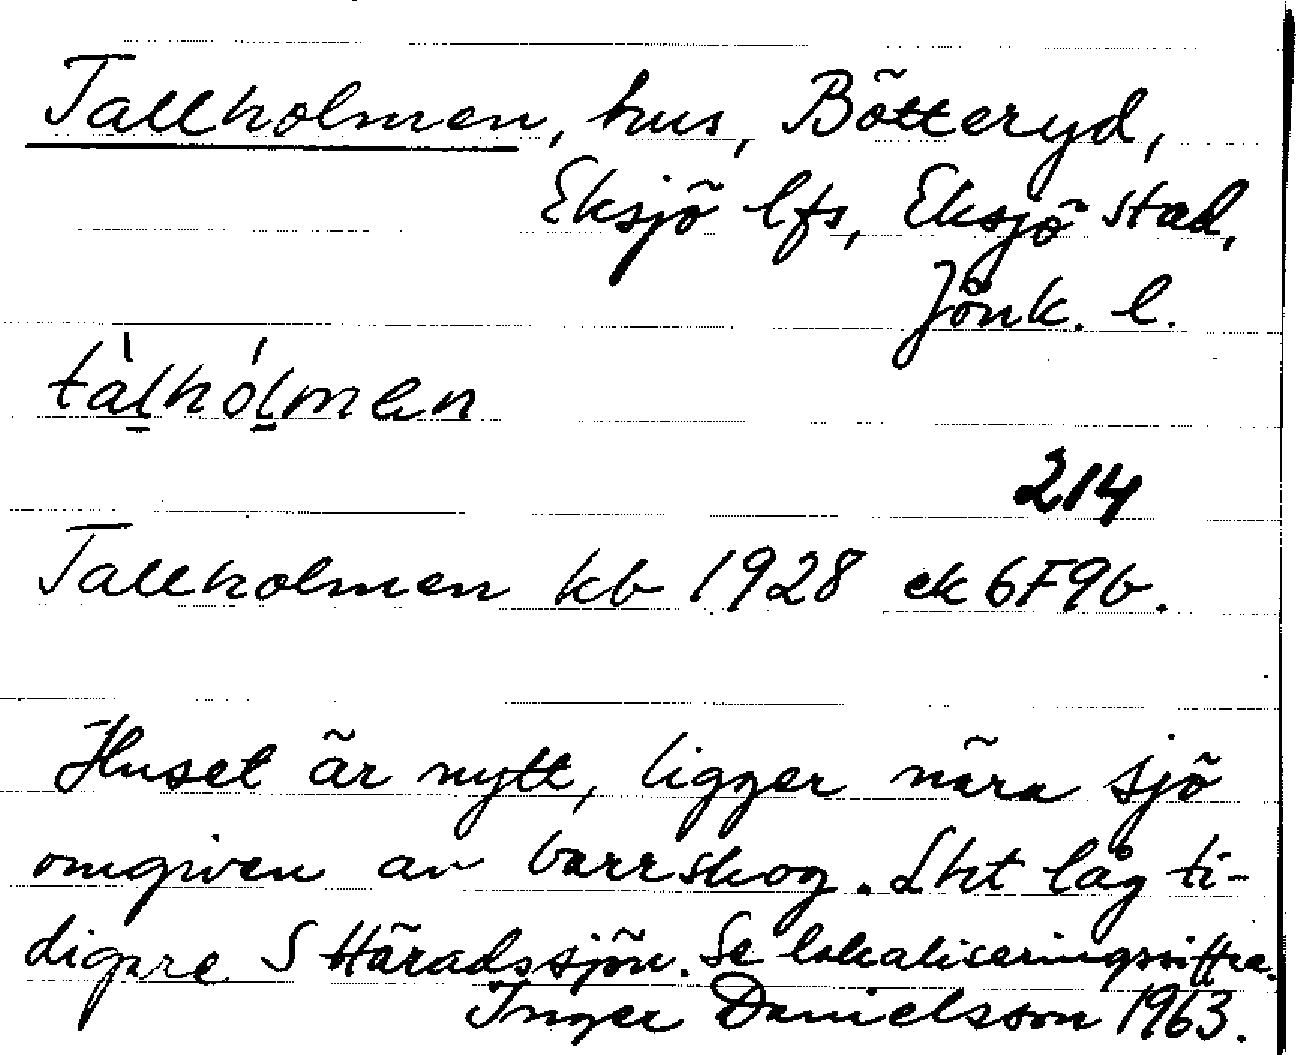 Tallholmen, hus, Bötteryd,
Eksjö lfs, Eksjö stad,
Jönk. l.
tàlhólmen
214
Tallholmen kb 1928 ek 6F9b.
Huset är nytt, ligger nära sjö
omgiven av barrskog. Lht låg ti-
digare S Häradssjön. Se lokaliseringssiffra.
Inger Danielsson 1963.